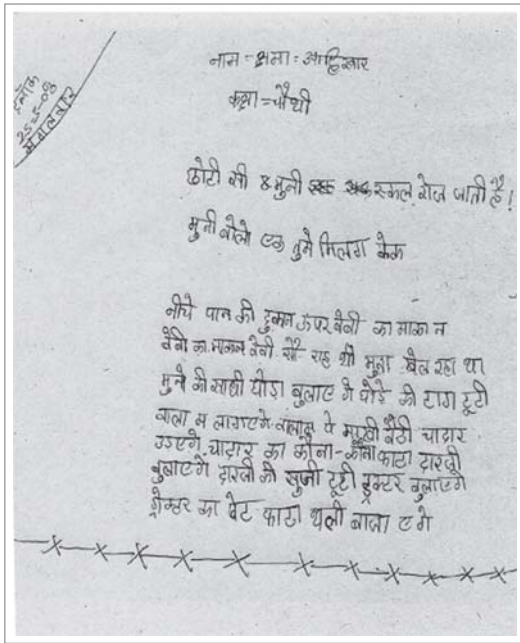 दिनाँक
25-5-08
मंगलवार
नाम = क्षमा = आहिरवार
कक्षा = चौथी
छोटी सी मुनी स्कल रोज जाती है!
मुनी बोले एक तुमे मिलग केक
नीचे पान की दुकान ऊपर बेबी का माकान
बेबी का माकान बेबी सौ राह थी मुना खेल रहा था
मुने की साथी घोड़ा बुलाए गे घोडे की टाग टूटी
वाला म लागएगे वालाम पे मख्खी बैठी चादार
उडएगे चादार का कोना-कोना फाटा दारजी
बुलाएगें दारजी की सुजी टूटी ड्रक्टर बुलाएगे
ड्रोक्टर का पेट फाटा थली बाजा ए गे